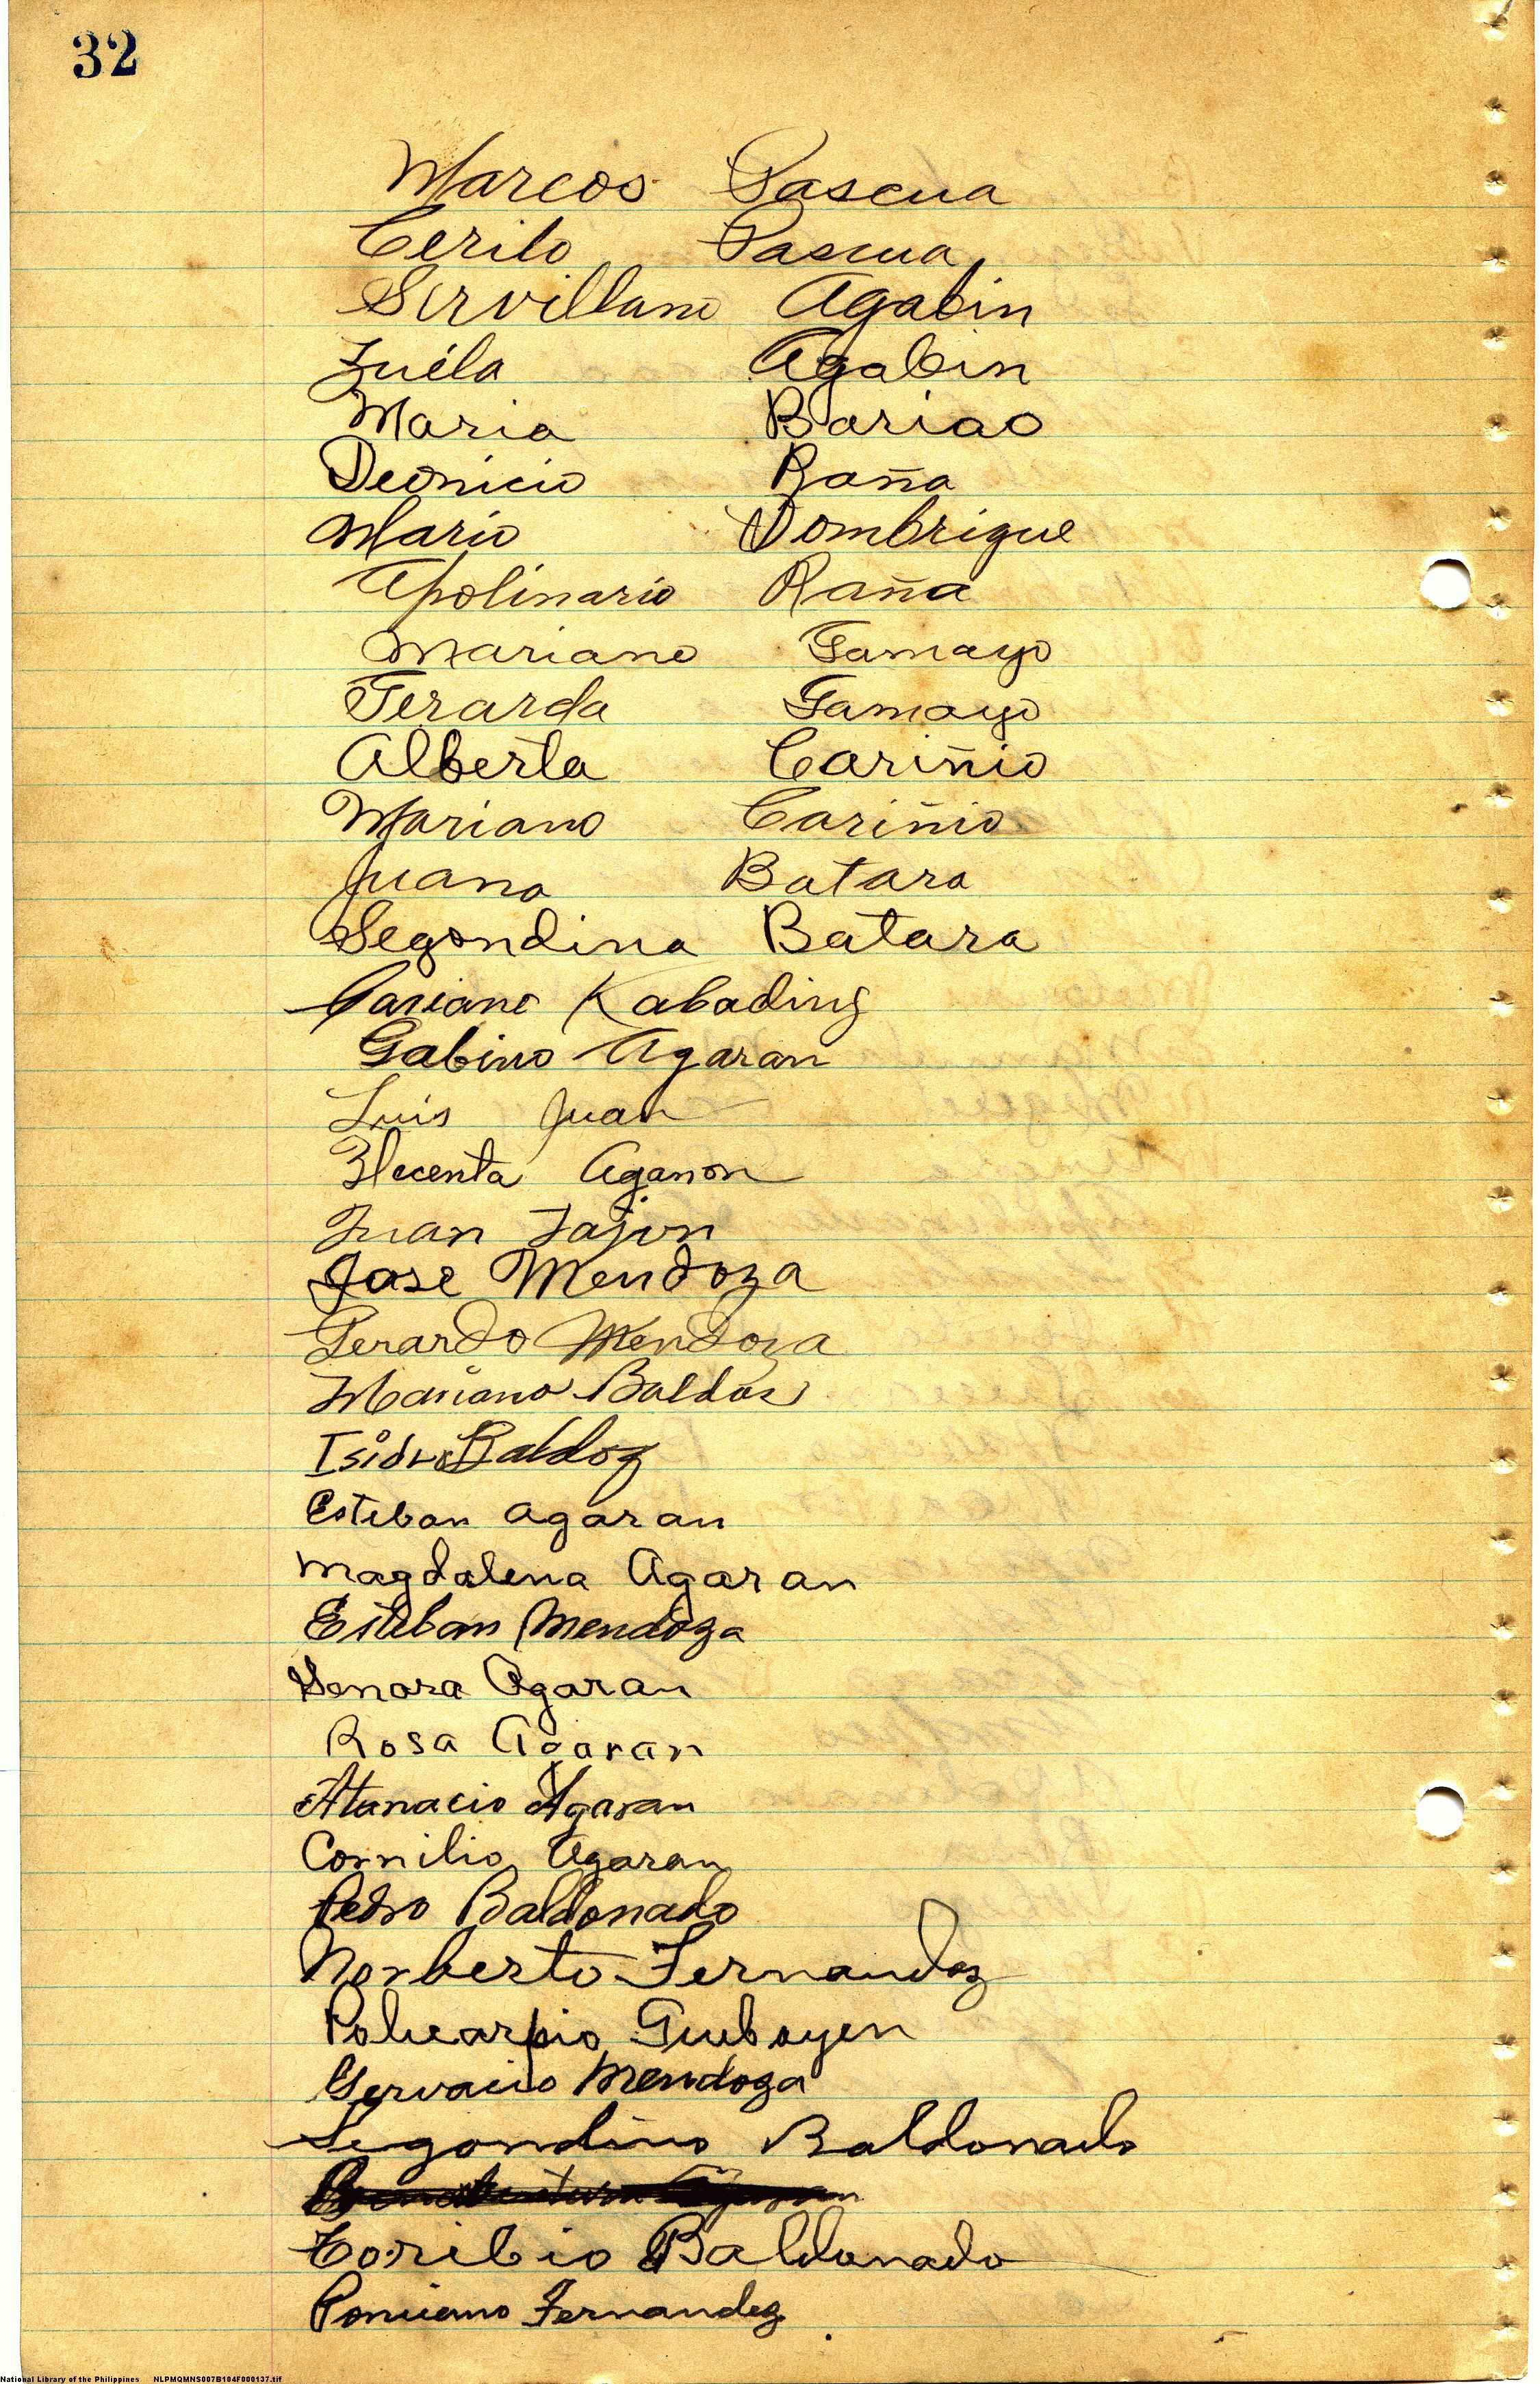 32
Marcos Pascua
Cerilo Pascua
Servillano Agabin
Zuela Agabin
Maria Bariao
Deonicio Raña
Mario Dombrigue
Apolinario Raña
Mariano Tamayo
Gerarda Tamayo
Alberta Cariñio
Mariano Cariñio
Juana Batara
Segondina Batara
Mariano Kabading
Gabino Agaran
Luis Juan
Aganon
Juan Tajon
Jose Mendoza
Gerardo Mendoza
Mariano Baldos
Isidro Baldoz
Esteban Agaran
Magdalena Agaran
Esteban Mendoza
Senora Agaran
Rosa Agaran
Atanacio Agaran
Cornilio Agaran
Pedro Baldonado
Norberto Fernandez
Policarpio Guboyen
Gervacio Mendoza
Segondino Baldonado
Toribio Baldonado
Ponciano Fernandez
National Library of the Philippines NLPMQMNS007B104F000137.tif